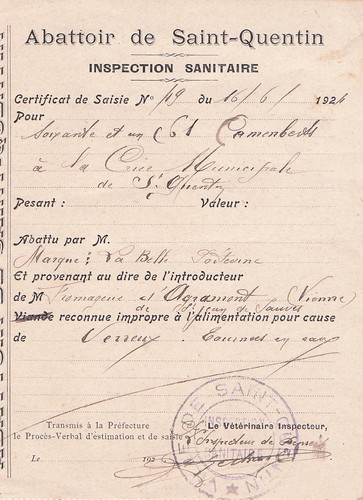 Abattoir de Saint-Quentin
INSPECTION SANITAIRE
Certificat de Saisie N° 49 du 16/6/ 1926
Pour
Soixante et un (61 Camemberts
à la Criée Municipale
de St Quentin
Pesant : Valeur :
Abattu par M.
Marque : La Belle Poitevine
Et provenant au dire de l'introducteur
de M Fromagerie d'Agramont (Vienne)
de St Jean de Sauves
Viande reconnue impropre à l'alimentation pour cause
de Verreux.
Transmis à la Préfecture
le Procès-Verbal d'estimation et de saisie
Le Vétérinaire Inspecteur,
L'Inspecteur de
Le 192
VILLE DE SAINT-QUENTIN
INSPECTION
SANITAIRE